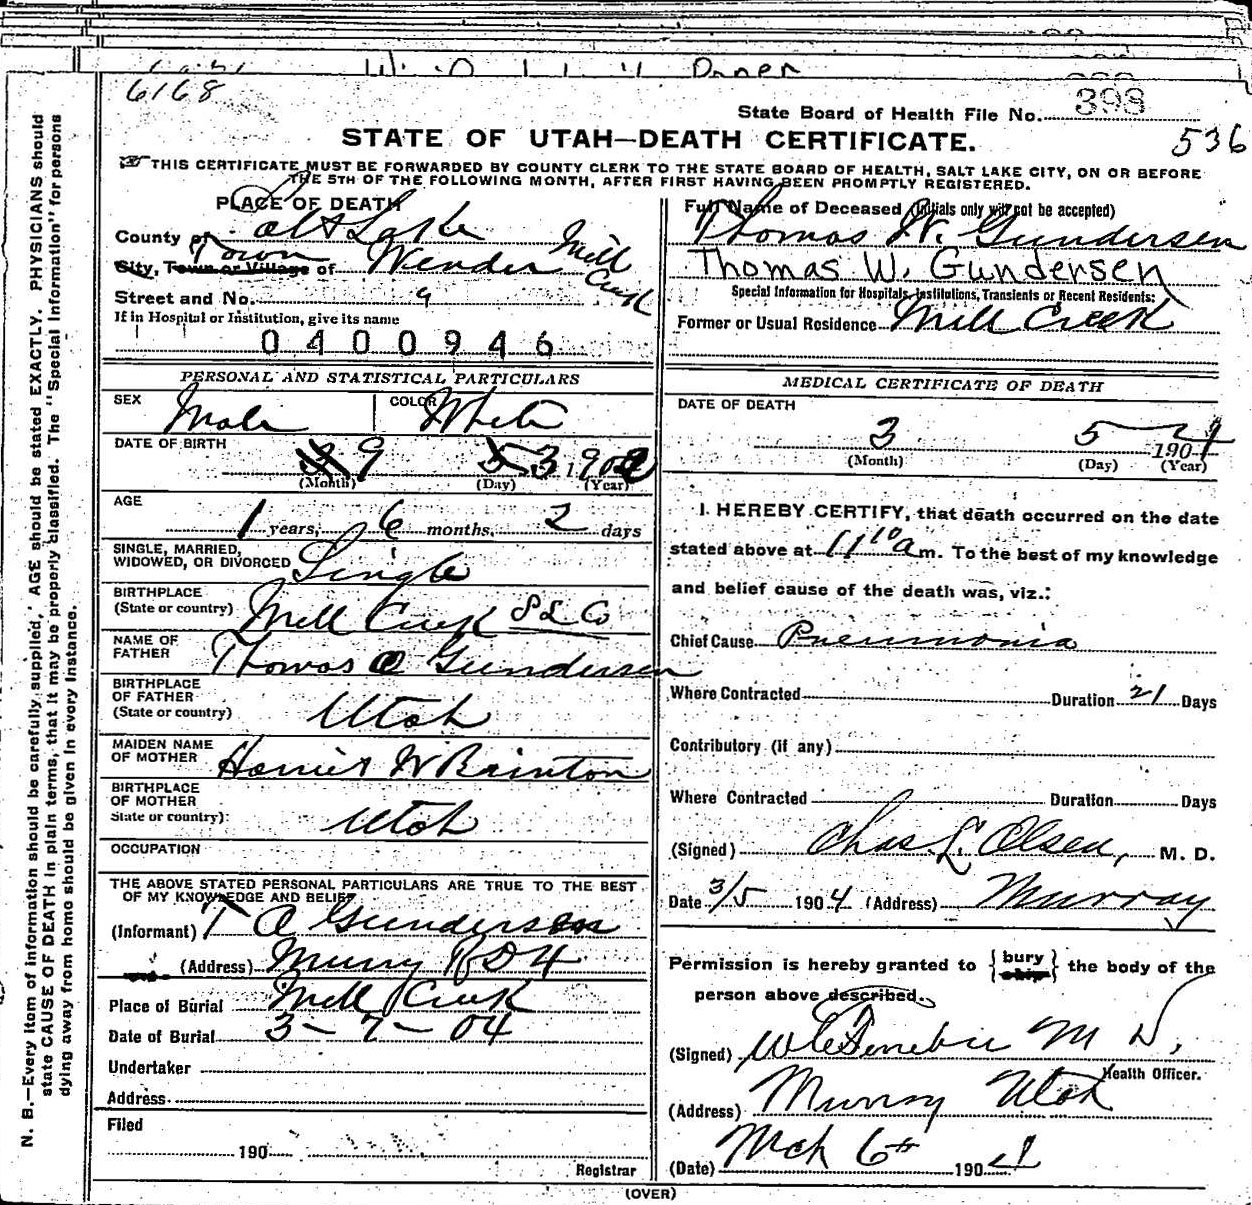 6168
State Board of Health File No. 393
536
STATE OF UTAH—DEATH CERTIFICATE.
THIS CERTIFICATE MUST BE FORWARDED BY COUNTY CLERK TO THE STATE BOARD OF HEALTH, SALT LAKE CITY, ON OR BEFORE
THE 5TH OF THE FOLLOWING MONTH, AFTER FIRST HAVING BEEN PROMPTLY REGISTERED.
PLACE OF DEATH
County of Salt Lake
Town
City, Town or Village of Mill Creek
Street and No.
If in Hospital or Institution, give its name
0400946
Full Name of Deceased (Initials only will not be accepted)
Thomas W. Gundersen
Thomas W. Gundersen
Special Information for Hospitals, Institutions, Transients or Recent Residents:
Former or Usual Residence Mill Creek
PERSONAL AND STATISTICAL PARTICULARS
SEX Male COLOR White
DATE OF BIRTH
9 3 190
(Month) (Day) (Year)
AGE
1 years, 6 months, 2 days
SINGLE, MARRIED,
WIDOWED, OR DIVORCED Single
BIRTHPLACE
(State or country) Mill Creek S L Co
NAME OF
FATHER Thomas O Gundersen
BIRTHPLACE
OF FATHER
(State or country) Utah
MAIDEN NAME
OF MOTHER Harriet W Bainton
BIRTHPLACE
OF MOTHER
State or country): Utah
OCCUPATION
THE ABOVE STATED PERSONAL PARTICULARS ARE TRUE TO THE BEST
OF MY KNOWLEDGE AND BELIEF
(Informant) T O Gundersen
(Address) Murry RD 4
Place of Burial Mill Creek
Date of Burial 3-7-04
Undertaker
Address
Filed
190
Registrar
MEDICAL CERTIFICATE OF DEATH
DATE OF DEATH
3 5 1904
(Month) (Day) (Year)
I HEREBY CERTIFY, that death occurred on the date
stated above at 11 10 a m. To the best of my knowledge
and belief cause of the death was, viz.:
Chief Cause Pneumonia
Where Contracted Duration 21 Days
Contributory (if any)
Where Contracted Duration Days
(Signed) Chas. L. Olsen, M. D.
Date 3/5 1904 (Address) Murray
Permission is hereby granted to {bury ship} the body of the
person above described.
(Signed) M D,
Health Officer.
(Address) Murray Utah
(Date) Mch 6th 1904
(OVER)
N. B.—Every item of information should be carefully supplied. AGE should be stated EXACTLY. PHYSICIANS should
state CAUSE OF DEATH in plain terms, that it may be properly classified. The "Special Information" for persons
dying away from home should be given in every instance.